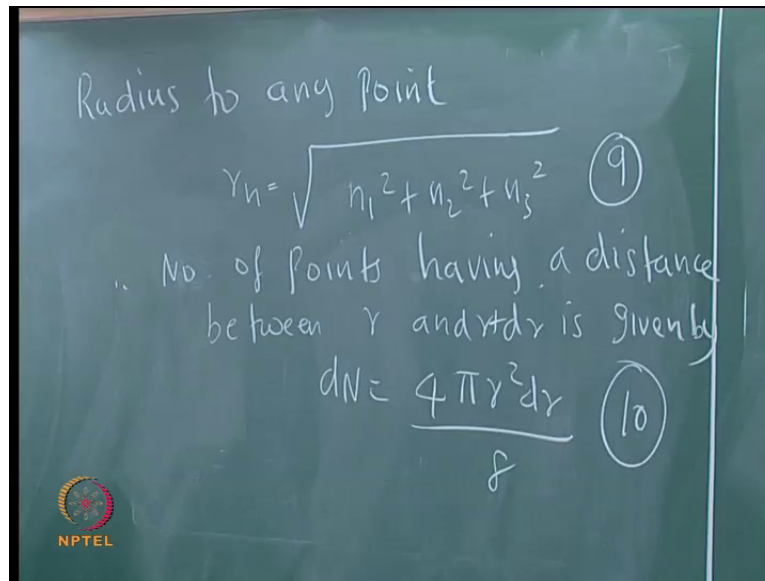 Radius to any Point
rn = √(n₁² + n₂² + n₃²) 9
∴ No. of Points having a distance
between r and r+dr is given by
dN = 4πr²dr / 8 10
NPTEL